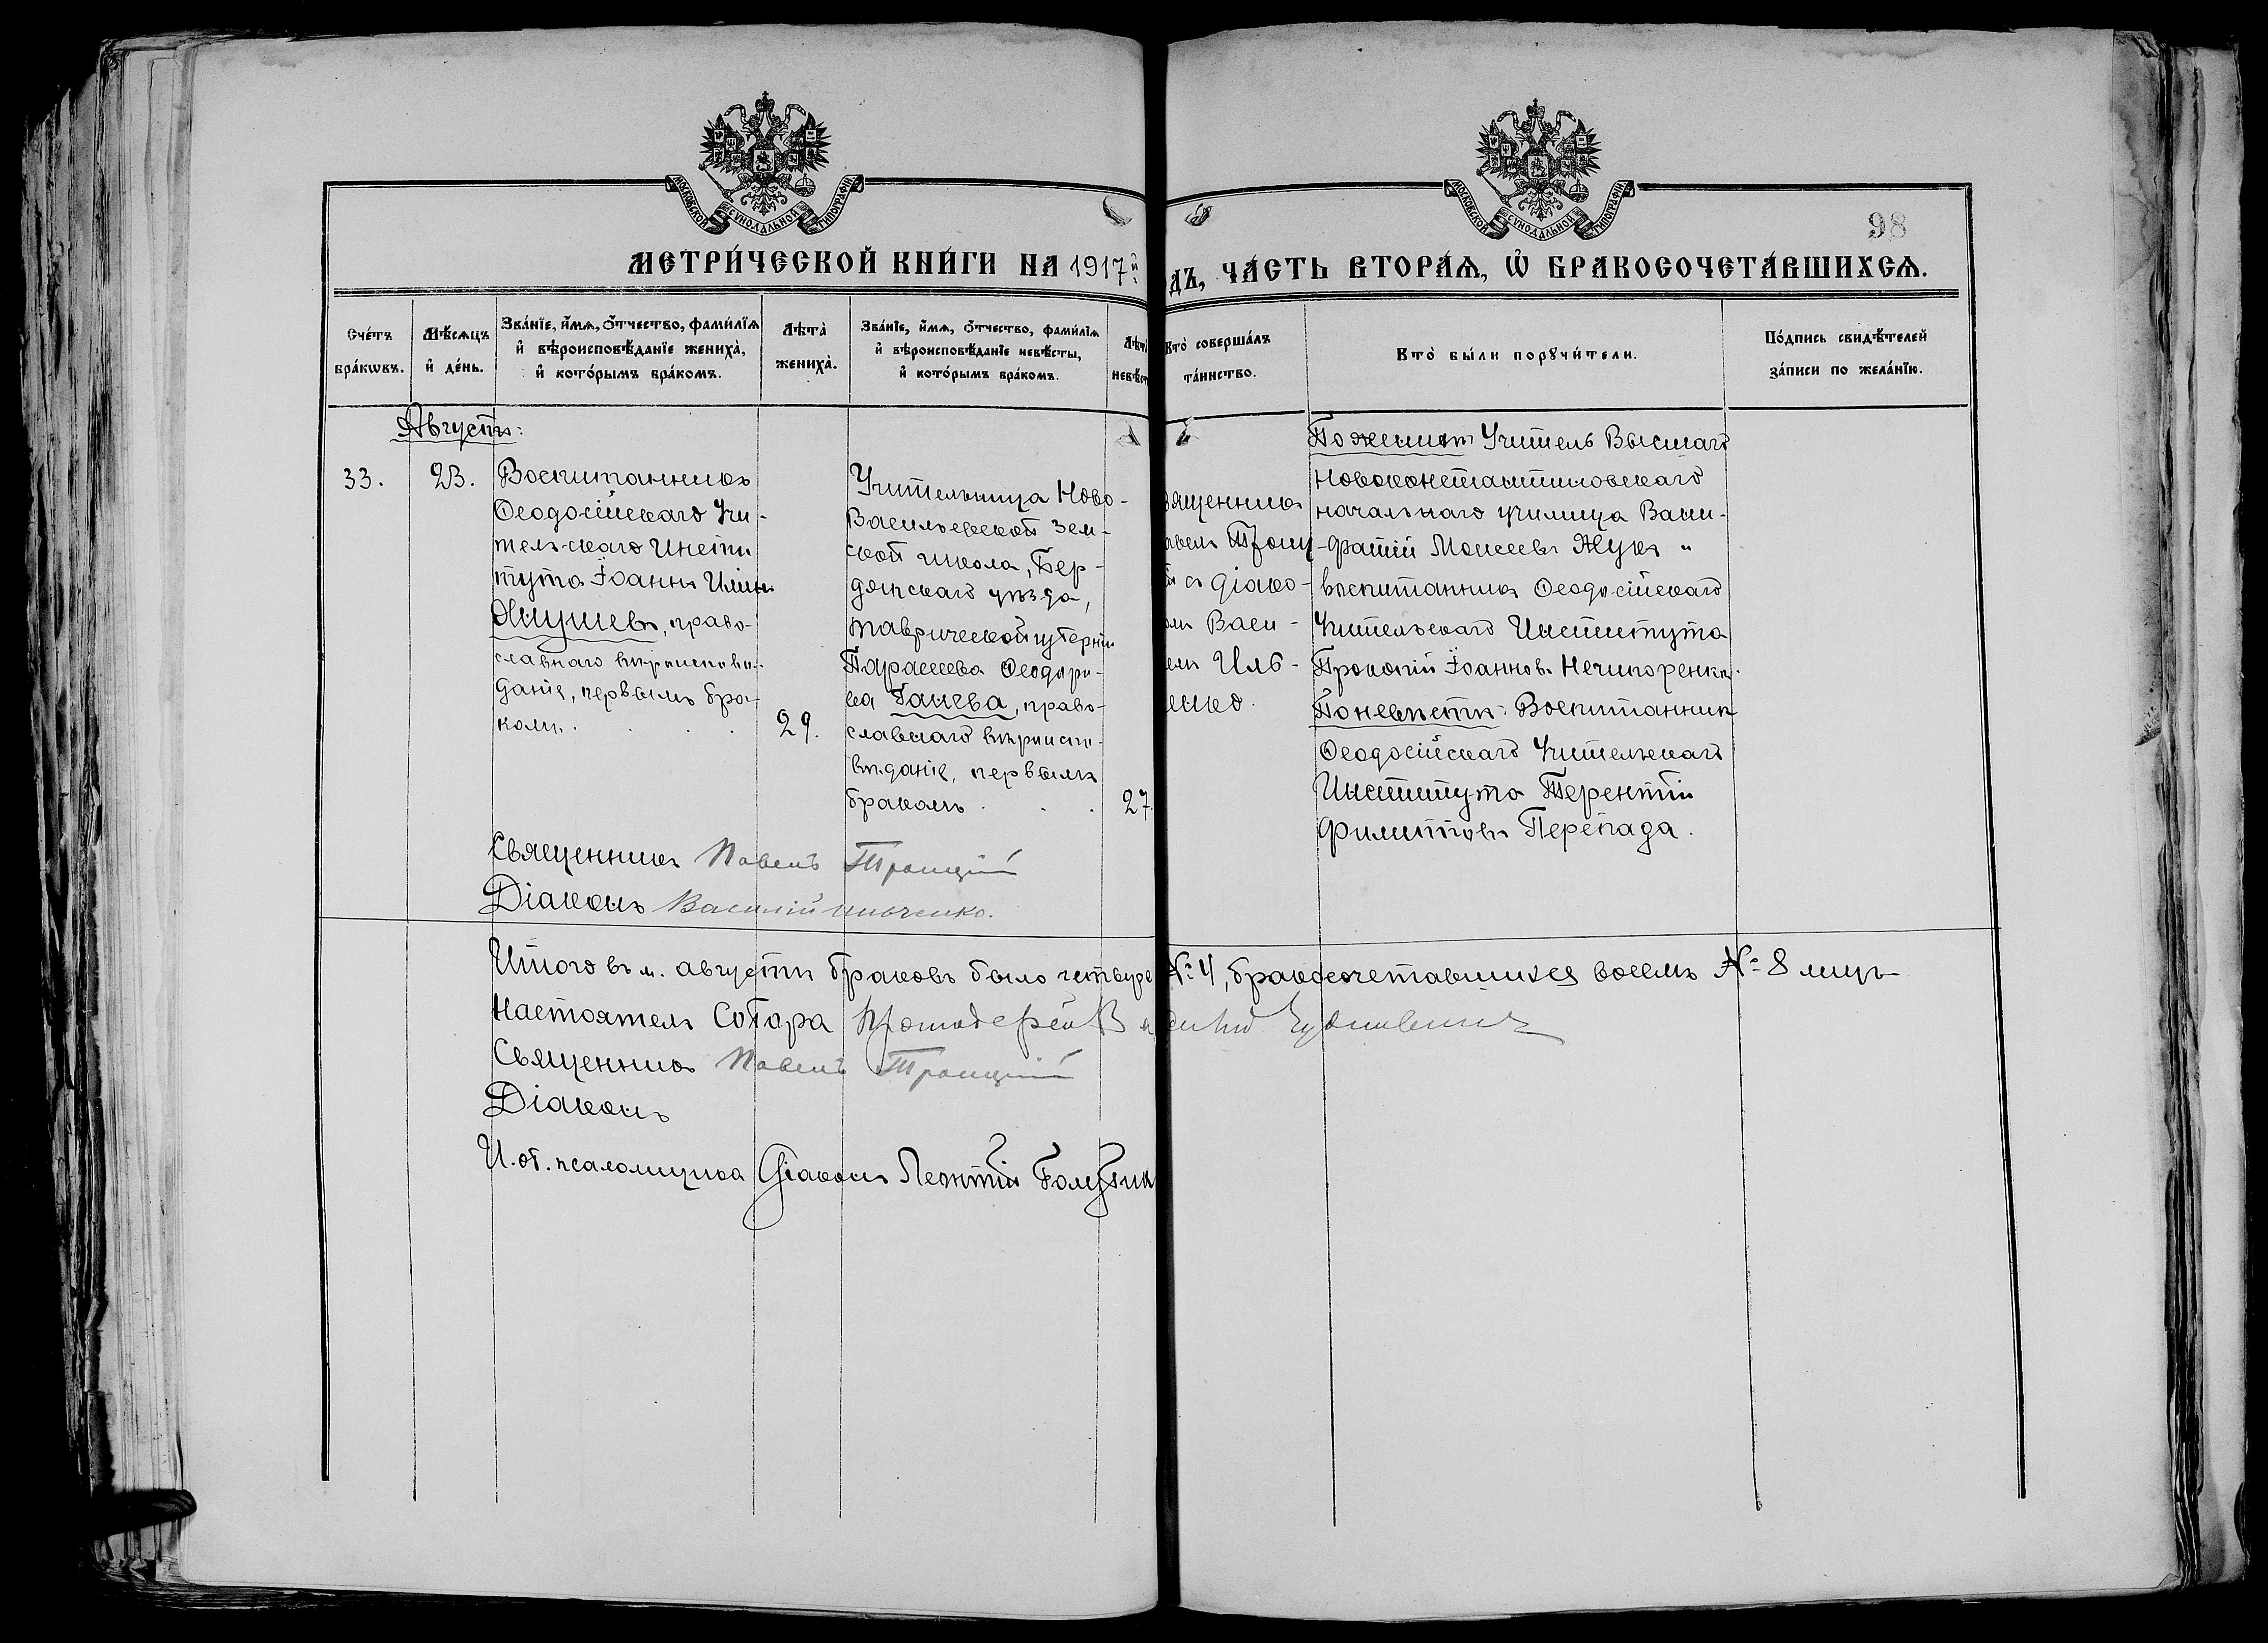 МОСКОВСКОЙ СѴНОДАЛЬНОЙ ТИПОГРАФІИ
МОСКОВСКОЙ СѴНОДАЛЬНОЙ ТИПОГРАФІИ
98
МЕТРИ́ЧЕСКОЙ КНИ́ГИ НА 1917й
дъ, ЧА́СТЬ ВТОРА́Ѧ, Ѡ҆ БРАКОСОЧЕТА́ВШИХСѦ.
Счетъ бра́кѡвъ.
Мѣ́сѧцъ и҆ де́нь.
Зва́нїе, и҆́мѧ, ѻ҆́тчество, фами́лїѧ и҆ вѣроисповѣ́данїе жениха̀, и҆ кото́рымъ бра́комъ.
Лѣта̀ жениха̀.
Зва́нїе, и҆́мѧ, ѻ҆́тчество, фами́лїѧ и҆ вѣроисповѣ́данїе невѣ́сты, и҆ кото́рымъ бра́комъ.
Лѣта невѣст
Кто̀ соверша́лъ та́инство.
Кто̀ бы́ли порꙋчи́тели.
По́дпись свидѣ́телей за́писи по жела́нїю.
Августъ:
33.
23.
Воспитанникъ
Ѳеодосійскаго Учи-
тельскаго Инсти
тута Іоаннъ Илiинъ
Янушевъ, право-
славнаго вѣроисповѣ-
данія, первымъ бра-
комъ.
29.
Учительница Ново-
Васильевской Зем-
ской школа, Бер-
дянскаго уѣзда,
Таврической губерніи
Параскева Ѳеодоро-
ва Ганева, право-
славнаго вѣроиспо-
вѣданія, первымъ
бракомъ.
27.
вященникъ
авелъ Троиц-
й съ діако-
омъ Васи-
емъ Иль-
енко.
По женихѣ Учитель Высшаго
Новоконстантиновскаго
начальнаго училища
фатій Моисеевъ Жукъ и
воспитанникъ Ѳеодосійскаго
Учительскаго Института
Прокопій Іоанновъ Нечипоренко.
По невѣстѣ: Воспитанникъ
Ѳеодосійскаго Учительскаго
Института Терентій
Филипповъ Перепада.
Священникъ Павелъ Троицкій
Діаконъ Василій Ильченко.
Итого въ м. августѣ браковъ было четыре № 4, бракосочетавшихся восемь № 8 лицъ
Настоятель Собора Протоіерей
Священникъ Павелъ Троицкій
Діаконъ
И. об. псаломщика Діаконъ Леонтій